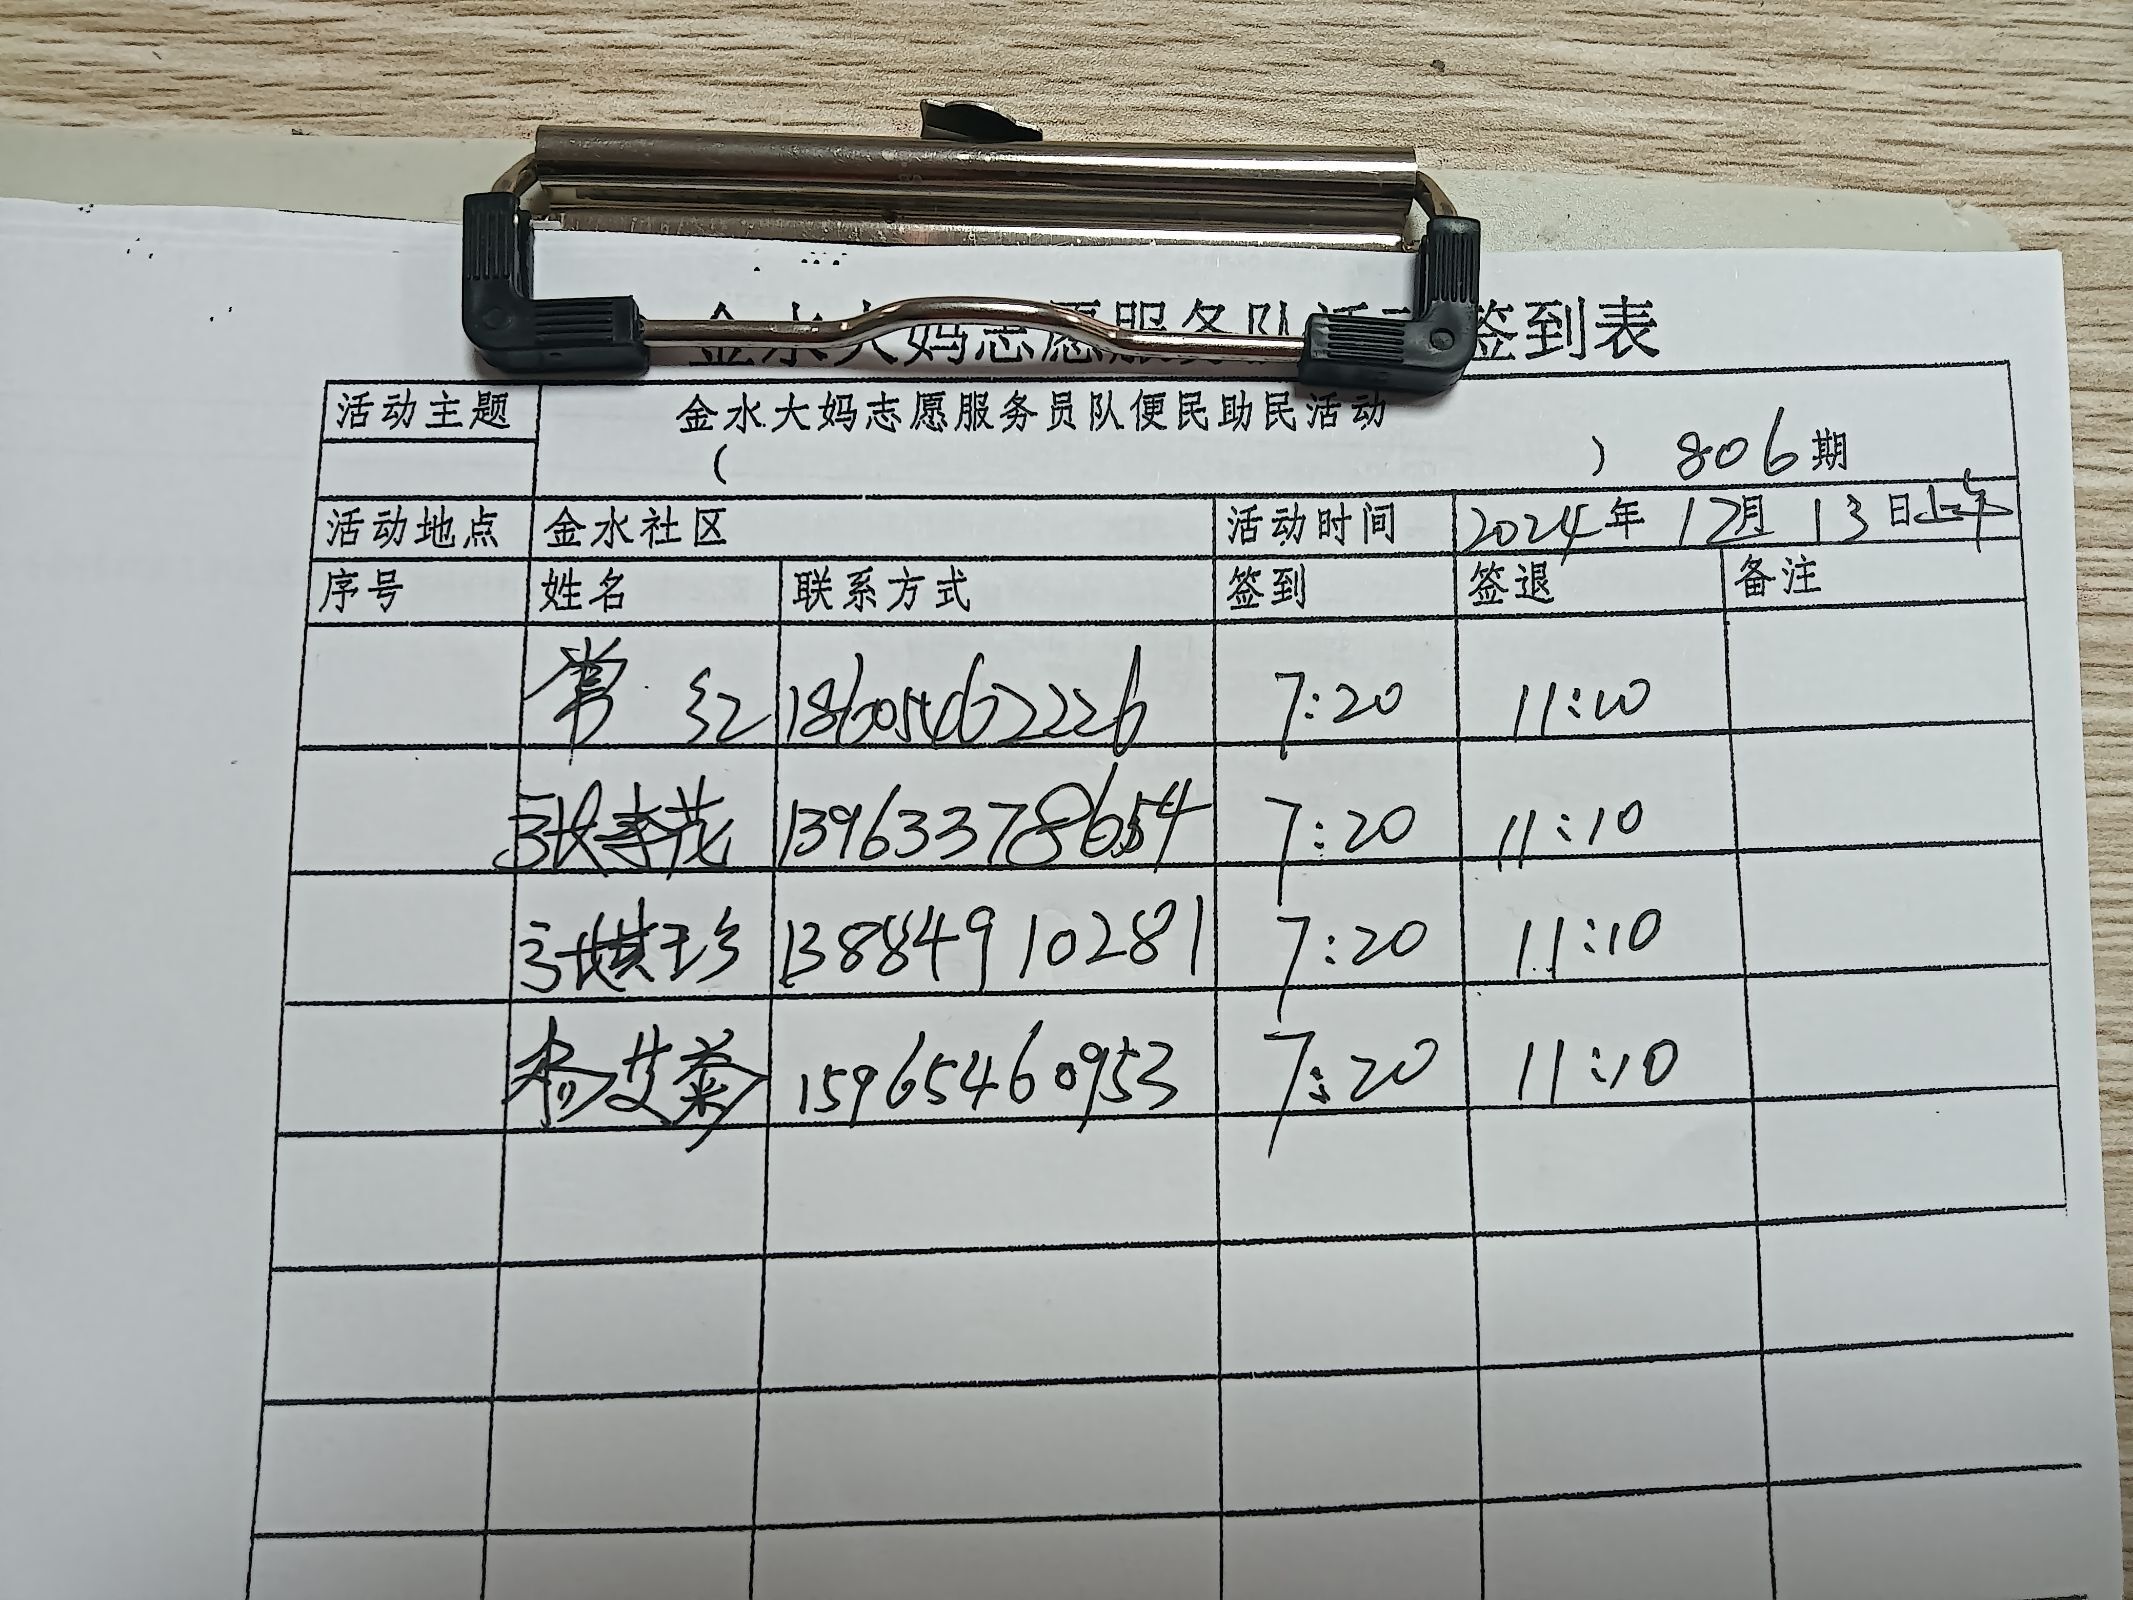 金水大妈志愿服务队活动签到表
活动主题 金水大妈志愿服务员队便民助民活动
( ) 806期
活动地点 金水社区 活动时间 2024年 12月 13日上午
序号 姓名 联系方式 签到 签退 备注
常红 18605462226 7:20 11:10
张李花 13963378654 7:20 11:10
13884910281 7:20 11:10
杨艾菊 15965460953 7:20 11:10